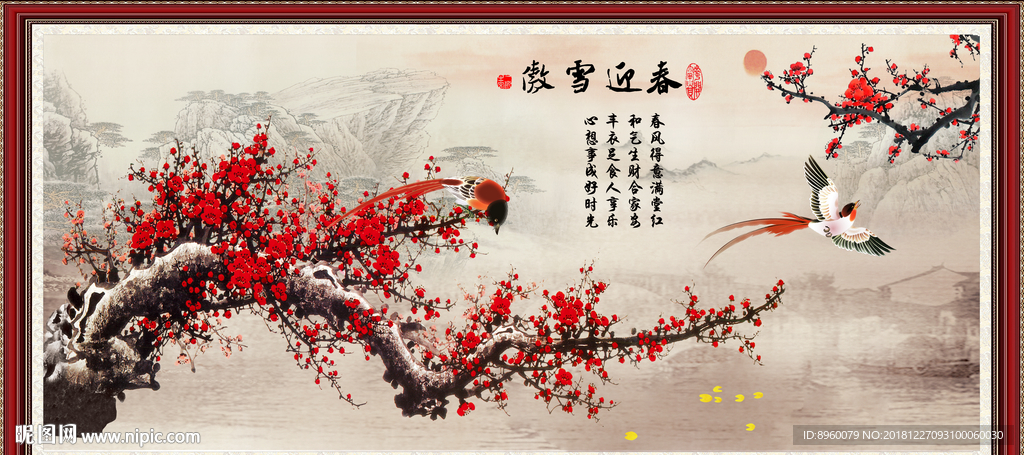 傲雪迎春
春风得意满堂红
和气生财合家安
丰衣足食人享乐
心想事成好时光
昵图网 www.nipic.com
ID:8960079 NO:20181227093100060030